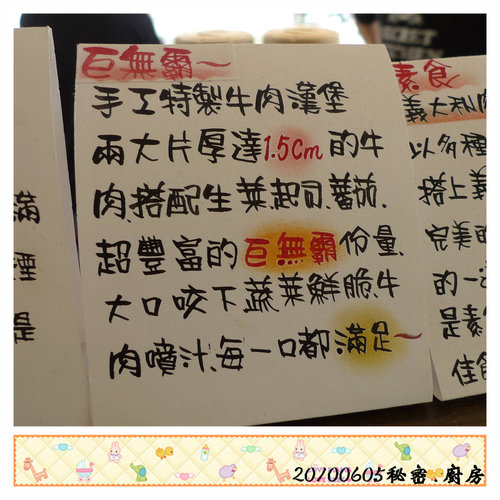 巨無霸～
手工特製牛肉漢堡
兩大片厚達1.5cm的牛
肉、搭配生菜、起司、蕃茄、
超豐富的巨無霸份量、
大口咬下蔬菜鮮脆、牛
肉噴汁、每一口都滿足～
素食
義大利肉
以多種
搭上義
完美的
的一
是素
佳食
滿
是
20100605秘密廚房